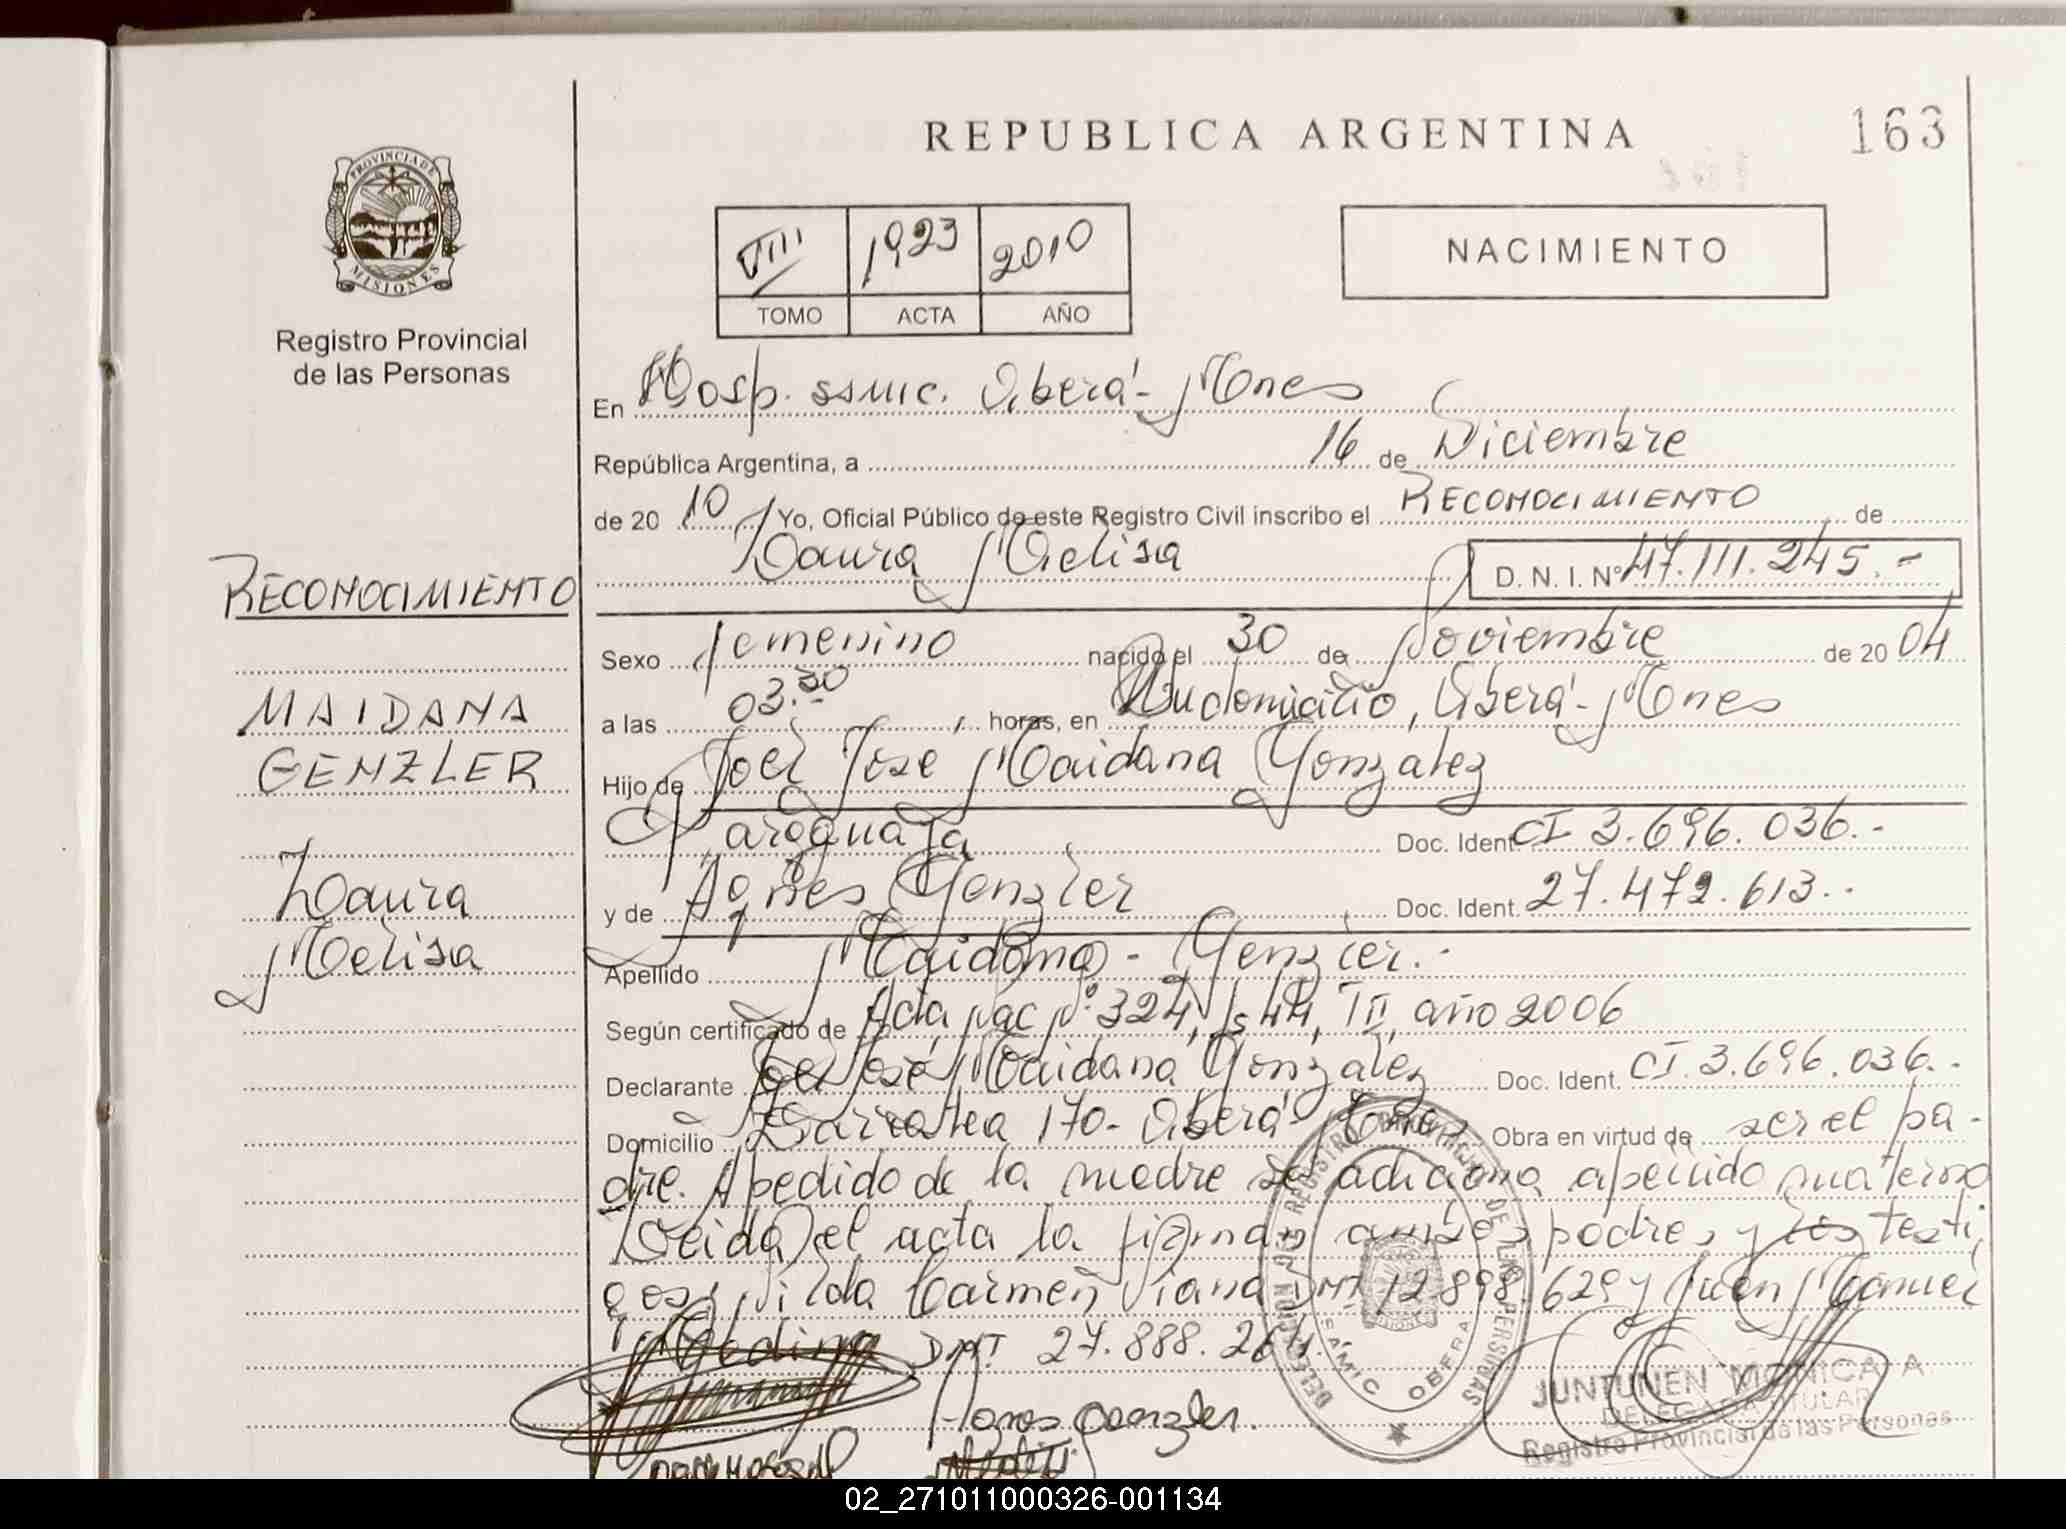 REPUBLICA ARGENTINA
163
PROVINCIA DE MISIONES
Registro Provincial
de las Personas
VIII 1923 2010
TOMO ACTA AÑO
NACIMIENTO
En Hosp. ssmic. Oberá - Mnes
República Argentina, a 16 de Diciembre
de 20 10 Yo, Oficial Público de este Registro Civil inscribo el RECONOCIMIENTO de
Laura Melisa D. N. I. Nº 47.111.245.-
RECONOCIMIENTO
MAIDANA
GENZLER
Laura
Melisa
Sexo femenino nacido el 30 de Noviembre de 20 04
a las 03:30 horas, en Su domicilio, Oberá - Mnes
Hijo de Joel Jose Maidana Gonzalez
Paraguaya Doc. Ident. CI 3.696.036.-
y de Agnes Genzler Doc. Ident. 27.472.613.-
Apellido Maidana - Genzler.-
Según certificado de Acta Nac Nº 324, Fs 44, TII, año 2006
Declarante Joel José Maidana Gonzalez Doc. Ident. CI. 3.696.036.-
Domicilio Barrotea 170 - Oberá - Mnes Obra en virtud de ser el pa-
dre. A pedido de la madre se adiciona apellido materno
Leida el acta la firman ambos padres y los testi
gos: Nilda Carmen Viana DNI 12.898.629 y Juan Manuel
Medina DNI. 27.888.264.
Genzler.
DELEGACION DEL REGISTRO PROVINCIAL DE LAS PERSONAS
SAMIC OBERA
JUNTUNEN MONICA A
DELEGADA TITULAR
Registro Provincial de las Personas
02_271011000326-001134